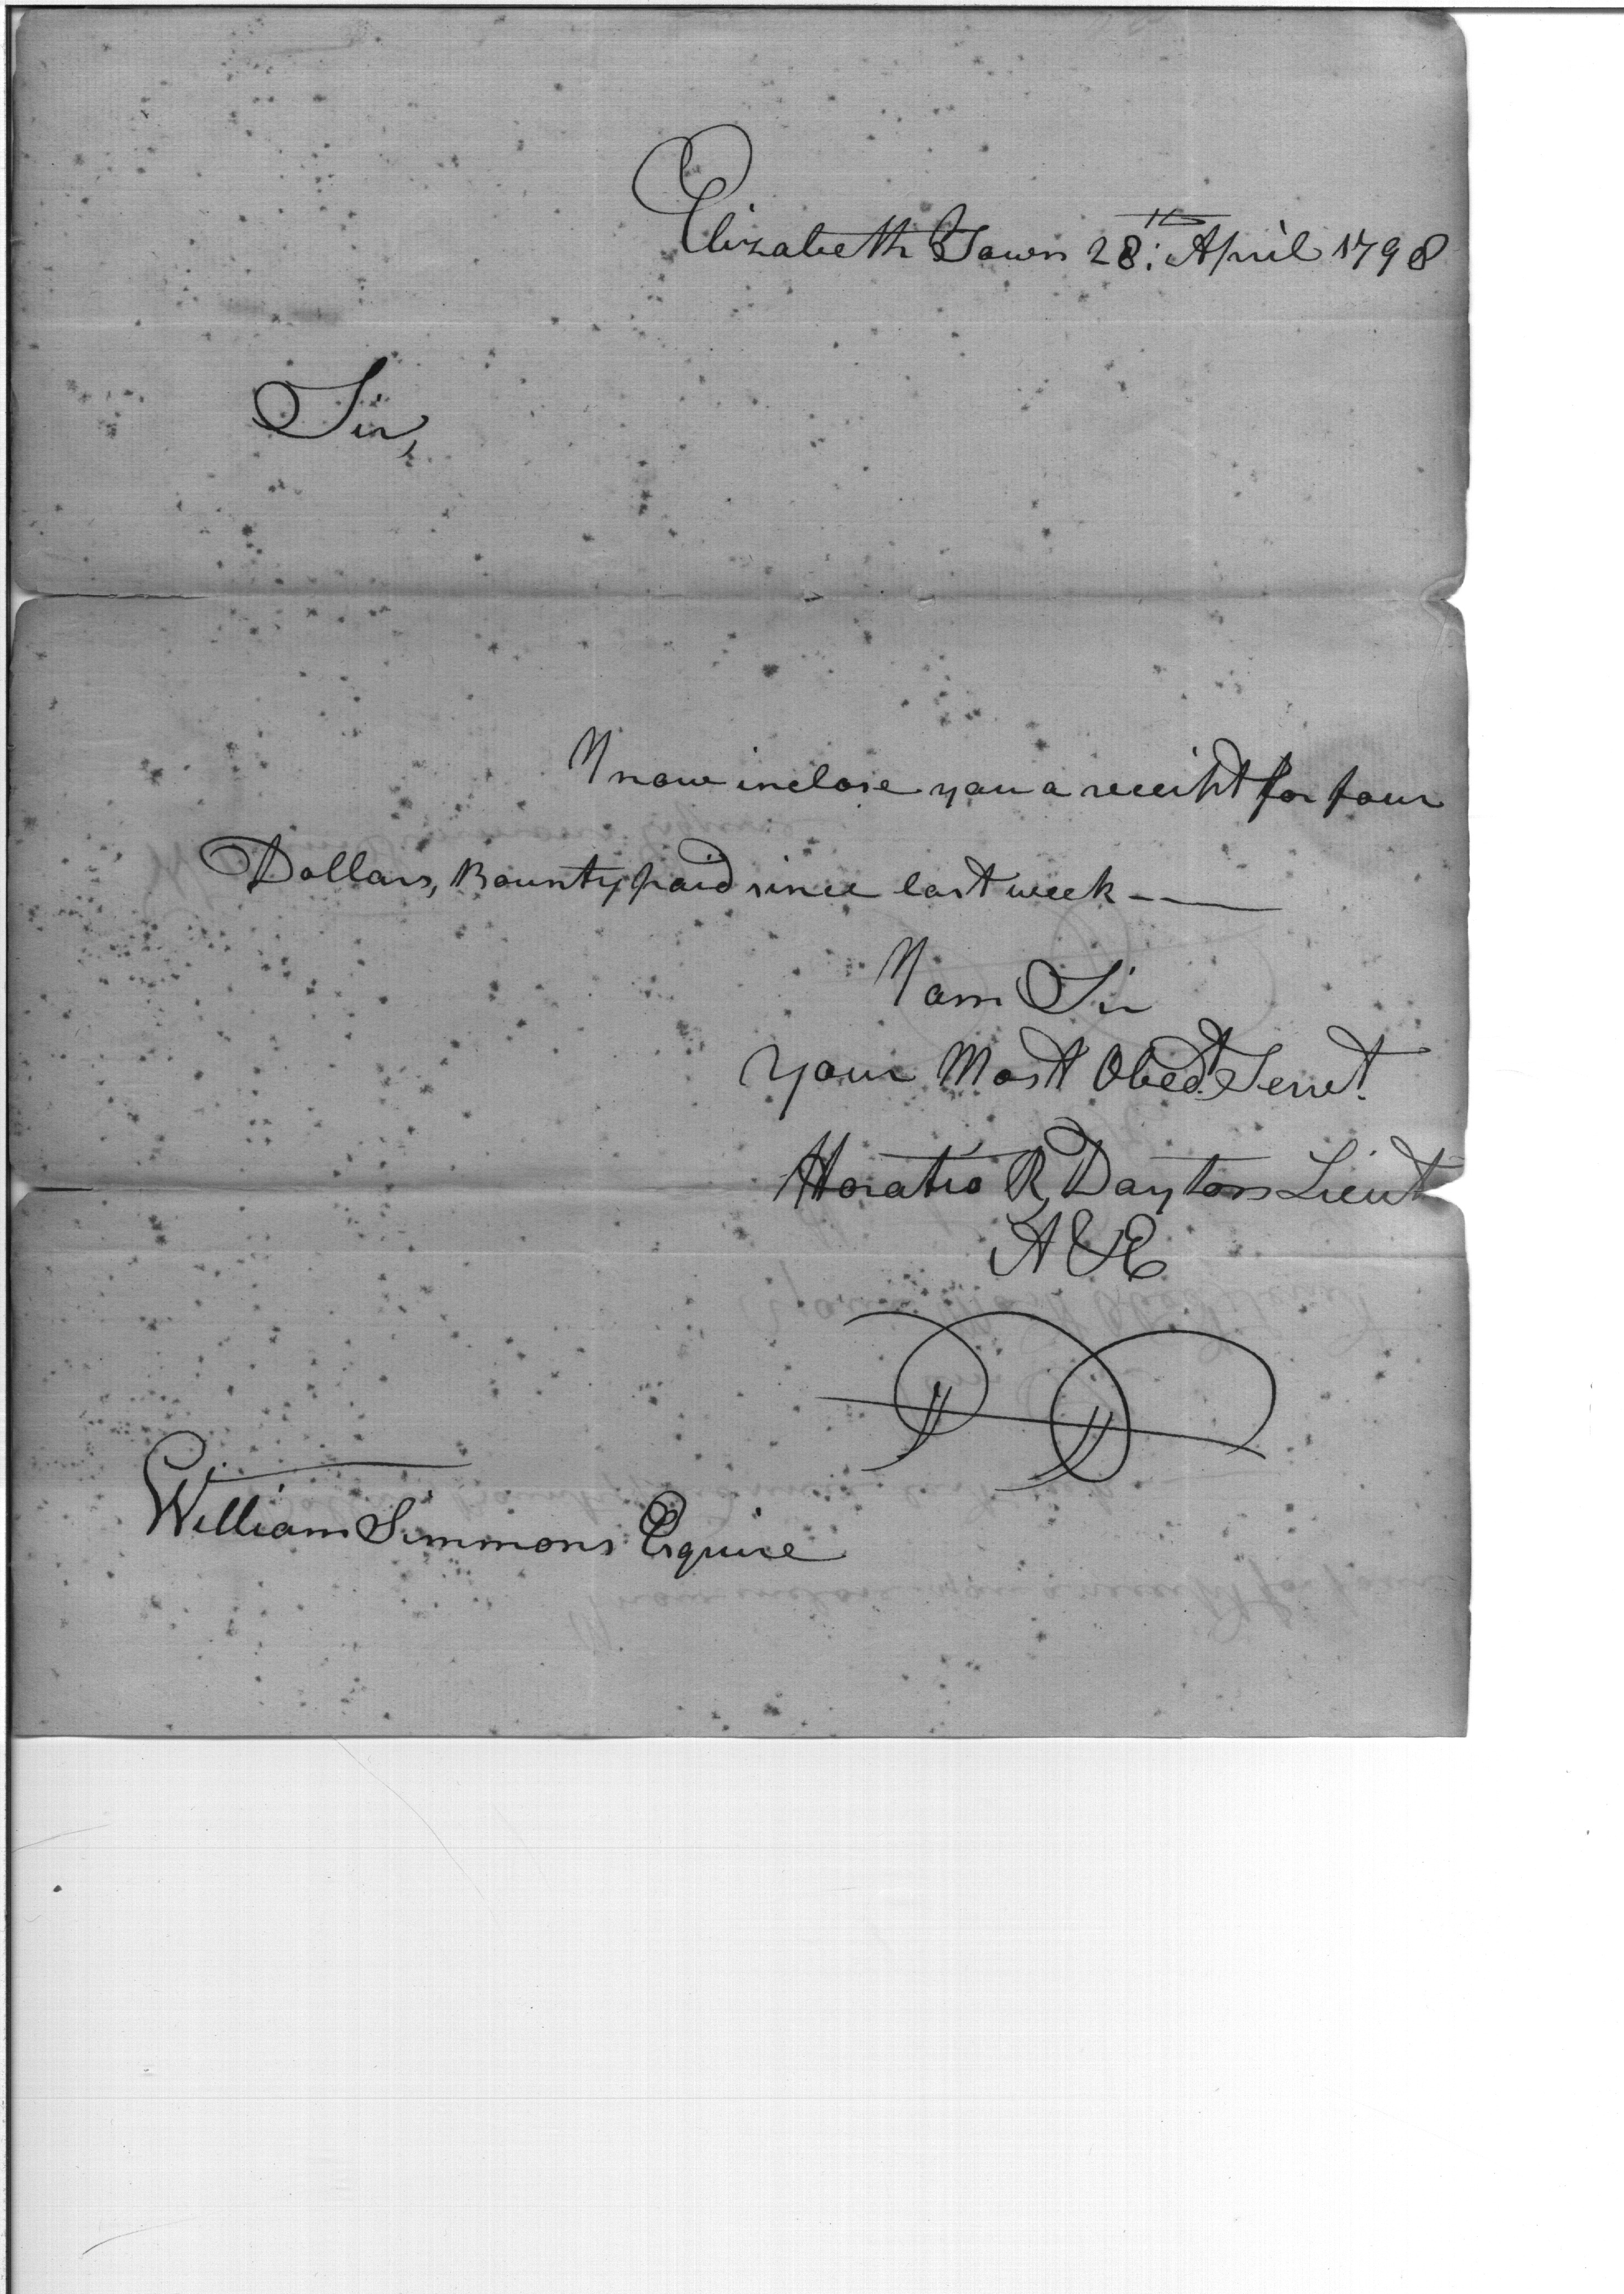 Elizabeth Town 28:th April 1798
Sir,
I now inclose you a receipt for four
Dollars, Bounty paid since last week -—
I am Sir
your Most Obedt. Servt.
Horatio R Dayton Lieut
A & E
William Simmons Esquire